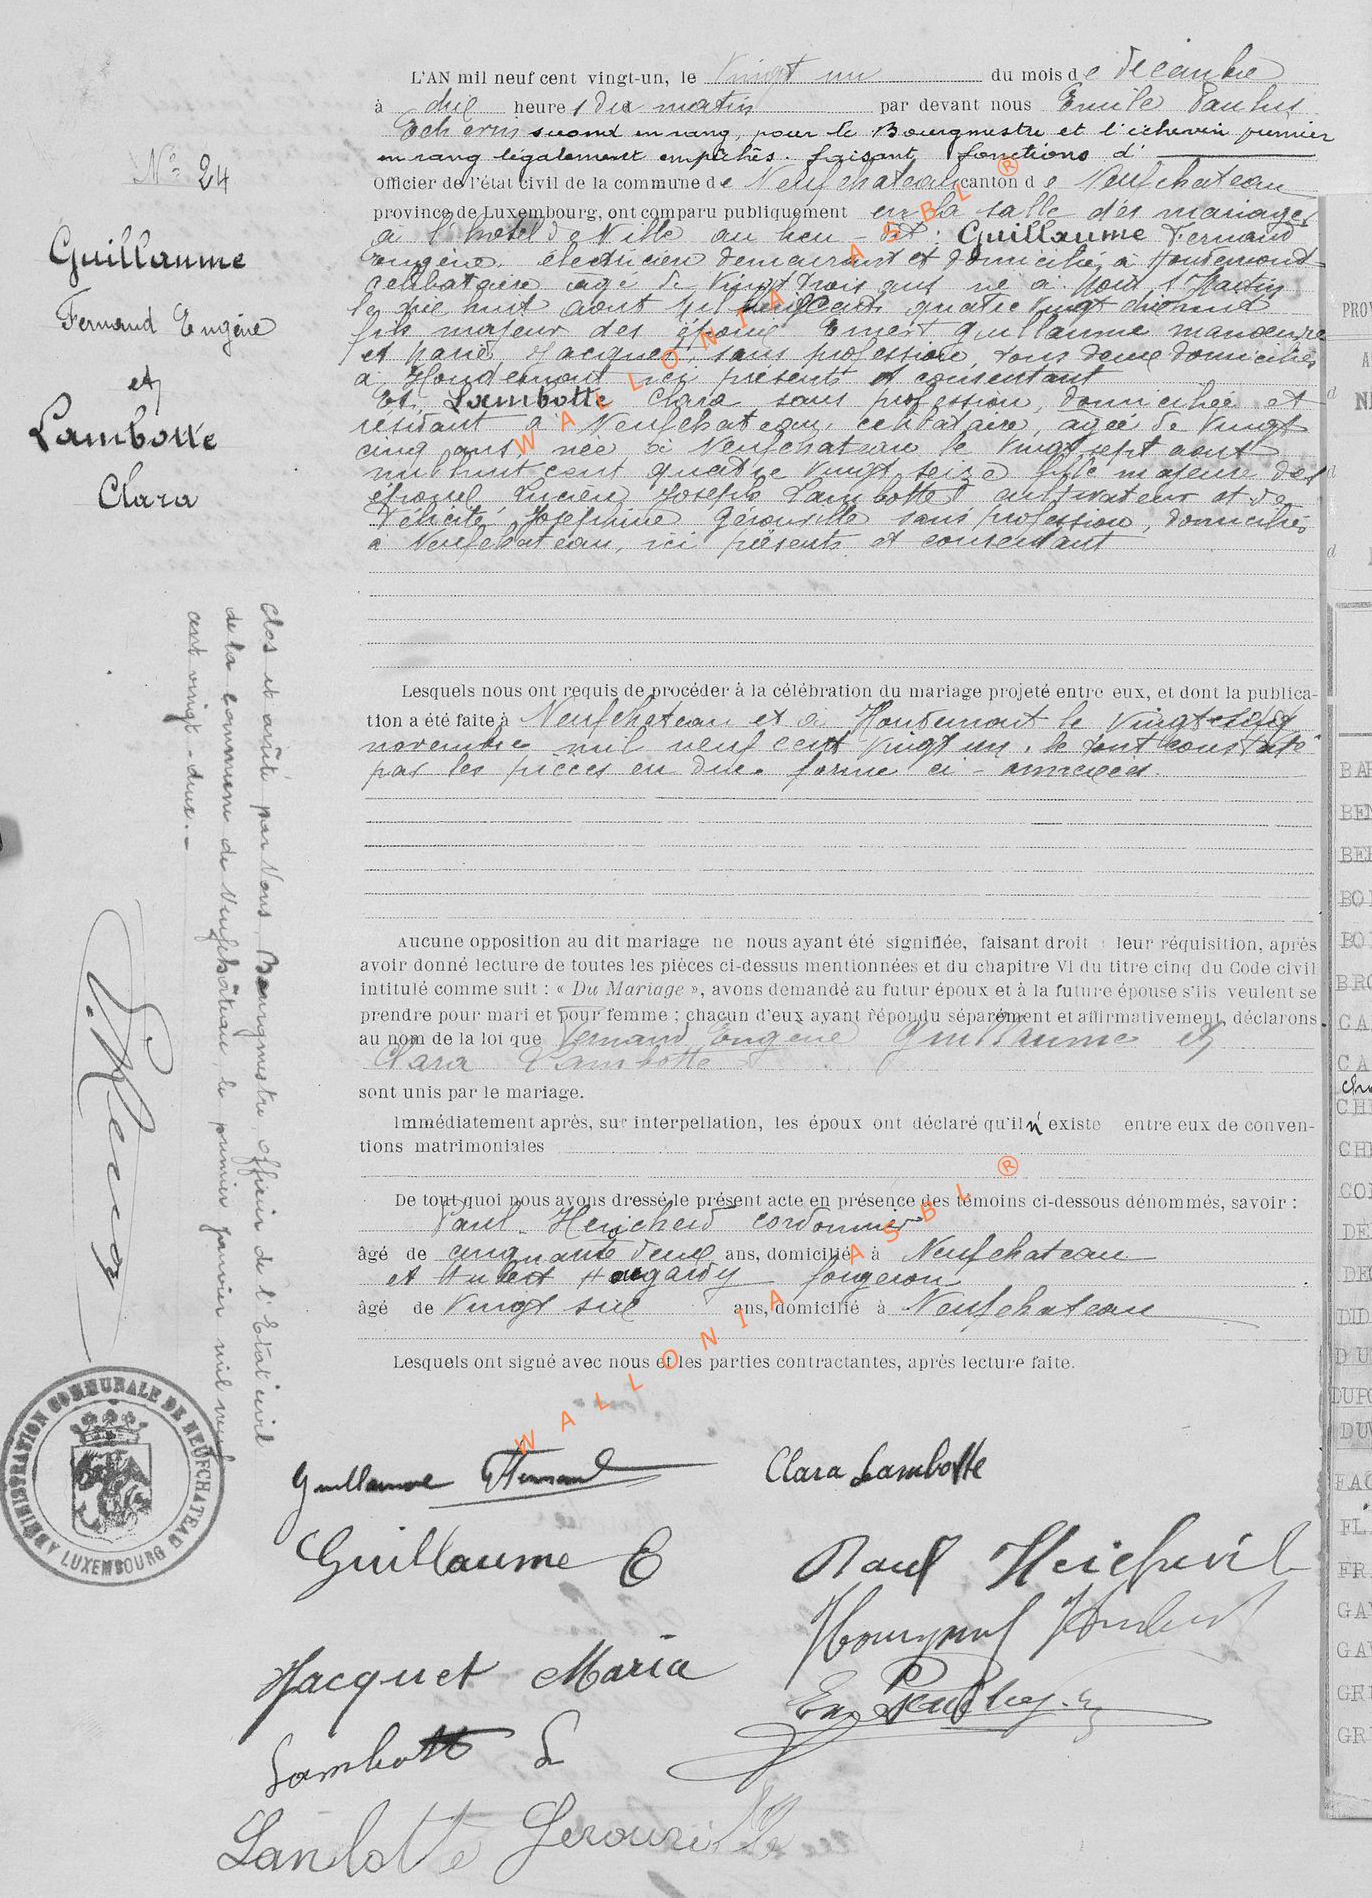 L'AN mil neuf cent vingt-un, le vingt un du mois de décembre
à dix heures du matin par devant nous Emile Paulus
Echevin second en rang, pour le Bourgmestre et l'échevin premier
en rang légalement empêchés. faisant fonctions d'
Officier de l'état civil de la commune de Neufchateau canton de Neufchateau
province de Luxembourg, ont comparu publiquement en la salle des mariages
à l'hôtel de Ville au lieu-dit: Guillaume Fernand
Eugène, électricien demeurant et domicilié à Houdemont
célibataire âgé de vingt trois ans né à St Martin
le dix huit août mil cent quatre vingt dix huit
fils majeur des époux Ernest Guillaume manoeuvre
et Marie Jacquet, sans profession, tous deux domiciliés
à Houdemont ici présents et consentant
Et Lambotte Clara sans profession, domiciliée et
résidant à Neufchateau, célibataire, agée de vingt
cinq ans, née à Neufchateau le vingt sept aout
mil huit cent quatre vingt seize fille majeure des
époux Lucien Joseph Lambotte cultivateur et de
Félicité Joséphine Gérouville sans profession, domiciliés
à Neufchateau, ici présents et consentant
N° 24
Guillaume
Fernand Eugène
et
Lambotte
Clara
Lesquels nous ont requis de procéder à la célébration du mariage projeté entre eux, et dont la publica-
tion a été faite à Neufchateau et à Houdemont le vingt
novembre mil neuf cent vingt un, le tout constaté
par les pièces en due forme ci-annexées.
Aucune opposition au dit mariage ne nous ayant été signifiée, faisant droit leur réquisition, après
avoir donné lecture de toutes les pièces ci-dessus mentionnées et du chapitre VI du titre cinq du Code civil
intitulé comme suit : « Du Mariage », avons demandé au futur époux et à la future épouse s'ils veulent se
prendre pour mari et pour femme ; chacun d'eux ayant répondu séparément et affirmativement, déclarons
au nom de la loi que Fernand Eugène Guillaume et
Clara Lambotte
sont unis par le mariage.
Immédiatement après, sur interpellation, les époux ont déclaré qu'il n'existe entre eux de conven-
tions matrimoniales
De tout quoi nous avons dressé le présent acte en présence des témoins ci-dessous dénommés, savoir :
Paul cordonnier
âgé de cinquante deux ans, domicilié à Neufchateau
et Hubert forgeron
âgé de vingt six ans, domicilié à Neufchateau
Lesquels ont signé avec nous et les parties contractantes, après lecture faite.
Clos et arrêté par Nous, Bourgmestre, officier de l'Etat civil
de la commune de Neufchâteau, le premier janvier mil neuf
cent vingt-deux.-
ADMINISTRATION COMMUNALE DE NEUFCHATEAU
LUXEMBOURG
Guillaume Fernand
Clara Lambotte
Guillaume E
Paul
Jacquet Maria
Lambotte L
Lambotte Gerouville
WALLONIA ASBL ®
WALLONIA ASBL ®